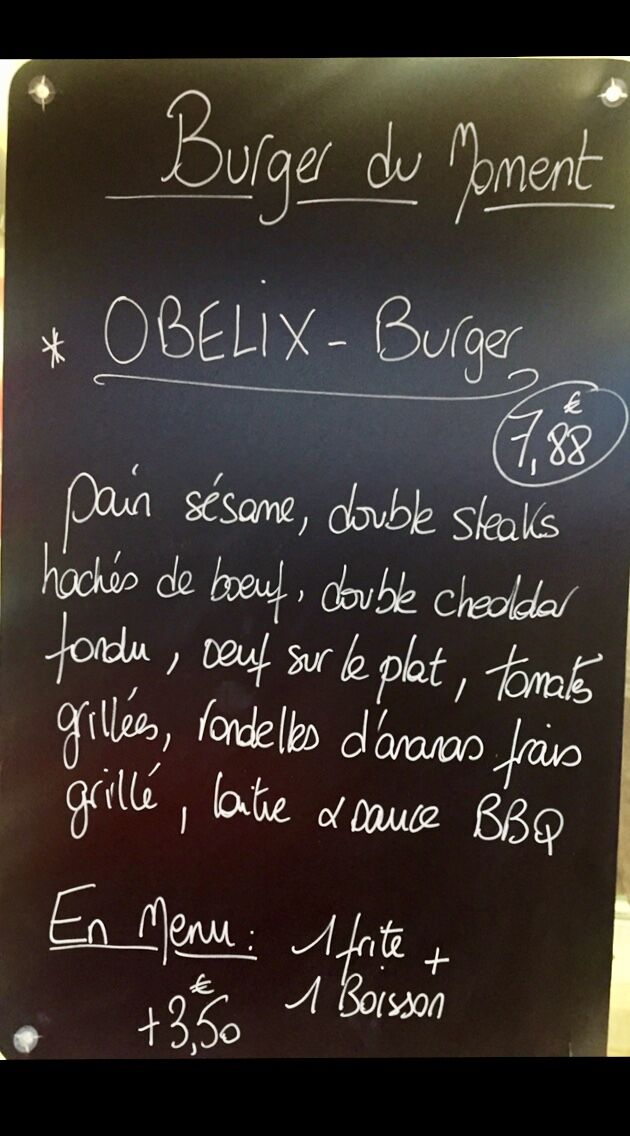 Burger du Moment
* OBELiX - Burger
7,88 €
pain sésame, double steaks
hachés de boeuf, double cheddar
fondu, oeuf sur le plat, tomates
grillées, rondelles d'ananas frais
grillé, laitue & sauce BBQ
En Menu: 1 frite +
1 Boisson
+3,50 €